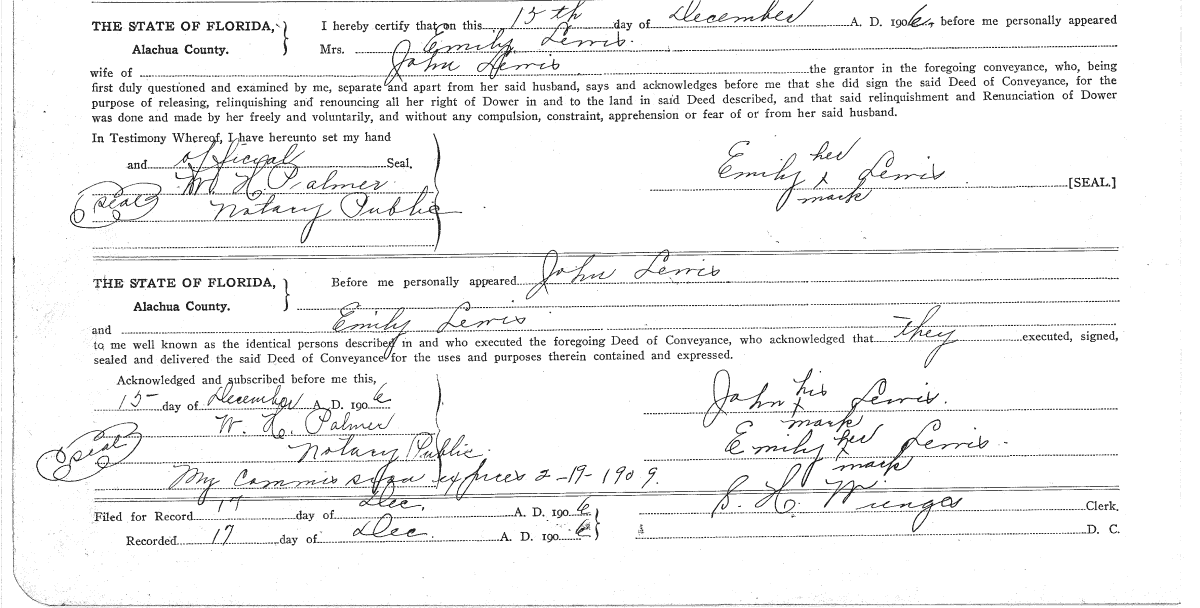 THE STATE OF FLORIDA, } I hereby certify that on this 15th day of December A. D. 1906, before me personally appeared
Alachua County. Mrs. Emily Lewis.
wife of John Lewis the grantor in the foregoing conveyance, who, being
first duly questioned and examined by me, separate and apart from her said husband, says and acknowledges before me that she did sign the said Deed of Conveyance, for the
purpose of releasing, relinquishing and renouncing all her right of Dower in and to the land in said Deed described, and that said relinquishment and Renunciation of Dower
was done and made by her freely and voluntarily, and without any compulsion, constraint, apprehension or fear of or from her said husband.
In Testimony Whereof, I have hereunto set my hand
and official Seal.
W. H. Palmer
(seal) Notary Public
Emily her x mark Lewis [SEAL.]
THE STATE OF FLORIDA, } Before me personally appeared John Lewis
Alachua County.
and Emily Lewis
to me well known as the identical persons described in and who executed the foregoing Deed of Conveyance, who acknowledged that they executed, signed,
sealed and delivered the said Deed of Conveyance for the uses and purposes therein contained and expressed.
Acknowledged and subscribed before me this,
15 day of December A. D. 1906
W. H. Palmer
(seal) Notary Public.
My Commission expires 2-19-1909.
John his x mark Lewis.
Emily her x mark Lewis.
Filed for Record 17 day of Dec. A. D. 1906 } S. H. Wienges Clerk.
Recorded 17 day of Dec. A. D. 1906 D. C.